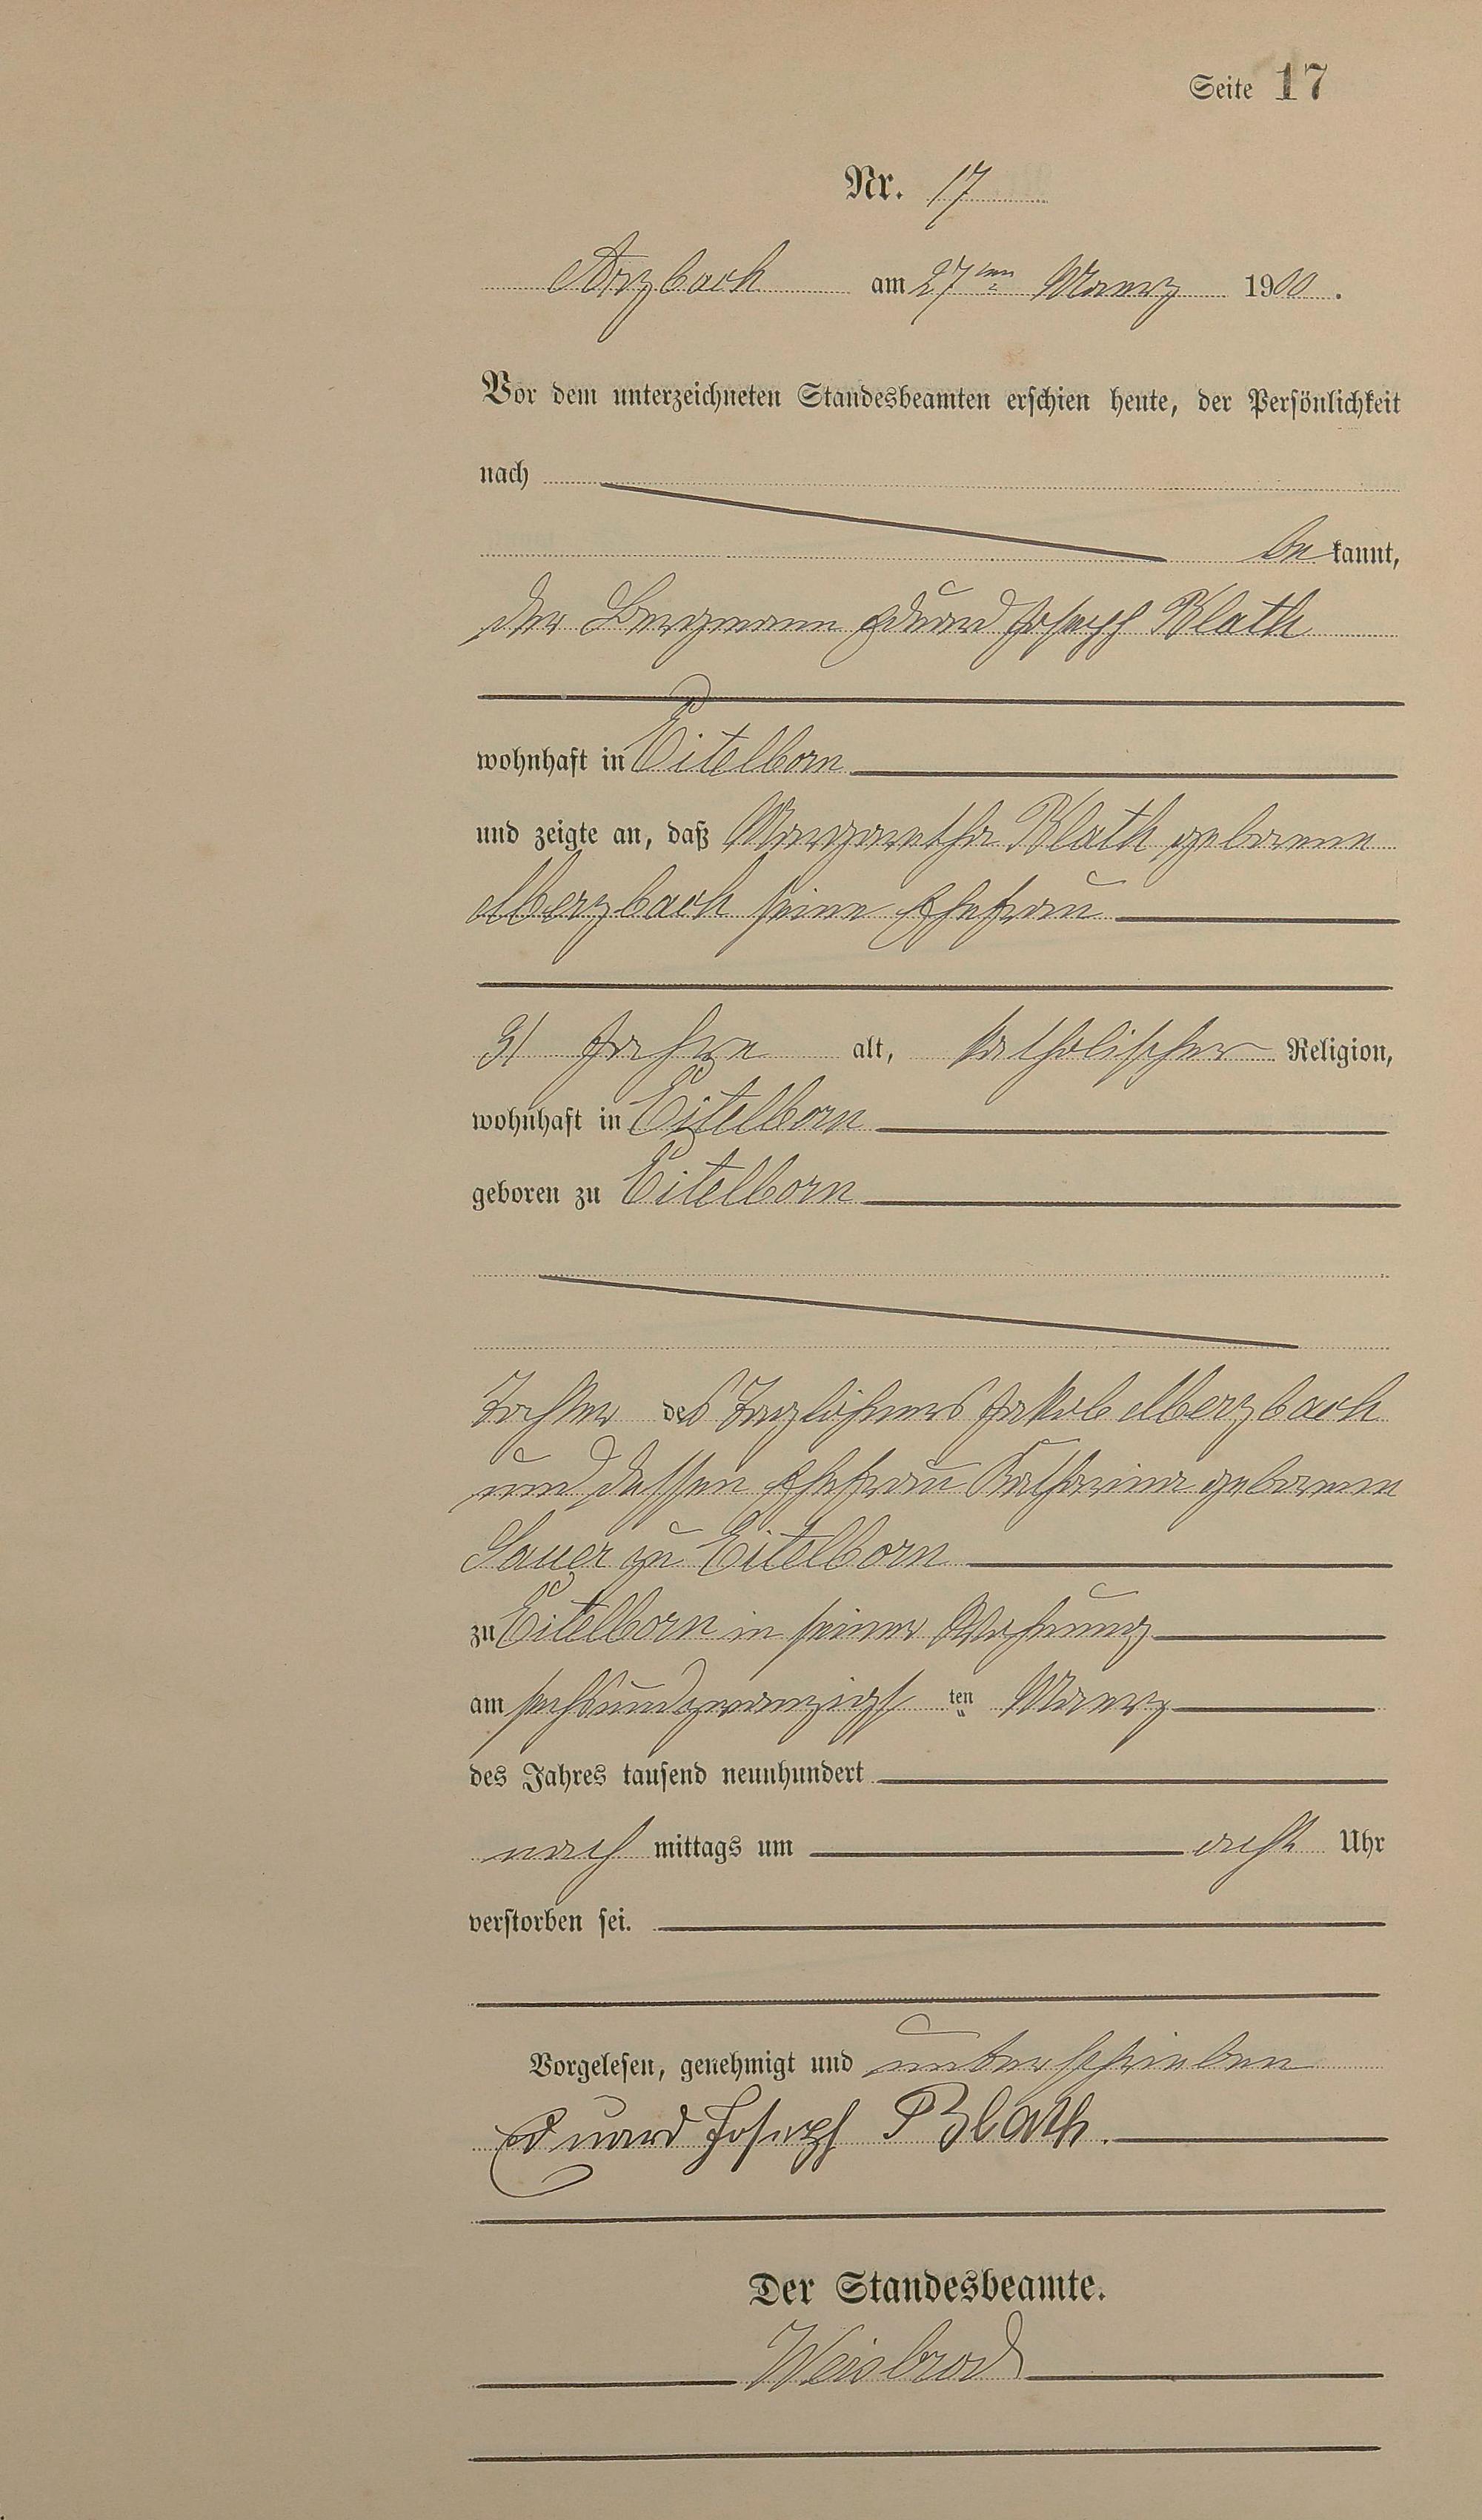 Seite 17
Nr. 17
Arzbach am 27ten Maerz 1900.
Vor dem unterzeichneten Standesbeamten erschien heute, der Persönlichkeit
nach
be kannt,
der Bergmann Eduard Joseph Blath
wohnhaft in Eitelborn
und zeigte an, daß Margaretha Blath geborene
Merzbach seine Ehefrau
31 Jahre alt, katholischer Religion,
wohnhaft in Eitelborn
geboren zu Eitelborn
Tochter des Taglöhners Jakob Merzbach
und dessen Ehefrau Katharina geborene
Sauer zu Eitelborn
zu Eitelborn in seiner Wohnung
am sechsundzwanzigst ten Maerz
des Jahres tausend neunhundert
nach mittags um acht Uhr
verstorben sei.
Vorgelesen, genehmigt und unterschrieben
Eduard Joseph Blath.
Der Standesbeamte.
Weisbrod